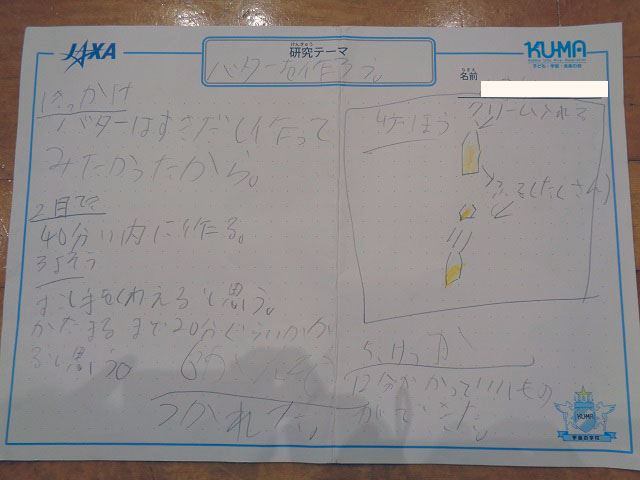 JAXA
けんきゅう
研究テーマ
バターを作ろう。
KU-MA
子ども・宇宙・未来の会
なまえ
名前
きっかけ
バターはすきだし作って
みたかったから。
2目てき
40分い内に作る。
3よそう
すし手をくわえると思う。
かたまるまで20分ぐらいかか
ると思う。
4ほうほう
クリーム入れる
ふる(たくさん)
5けっか
12分かかっていいもの
ができた。
6かんそう
つかれた。
KU-MA
宇宙の学校